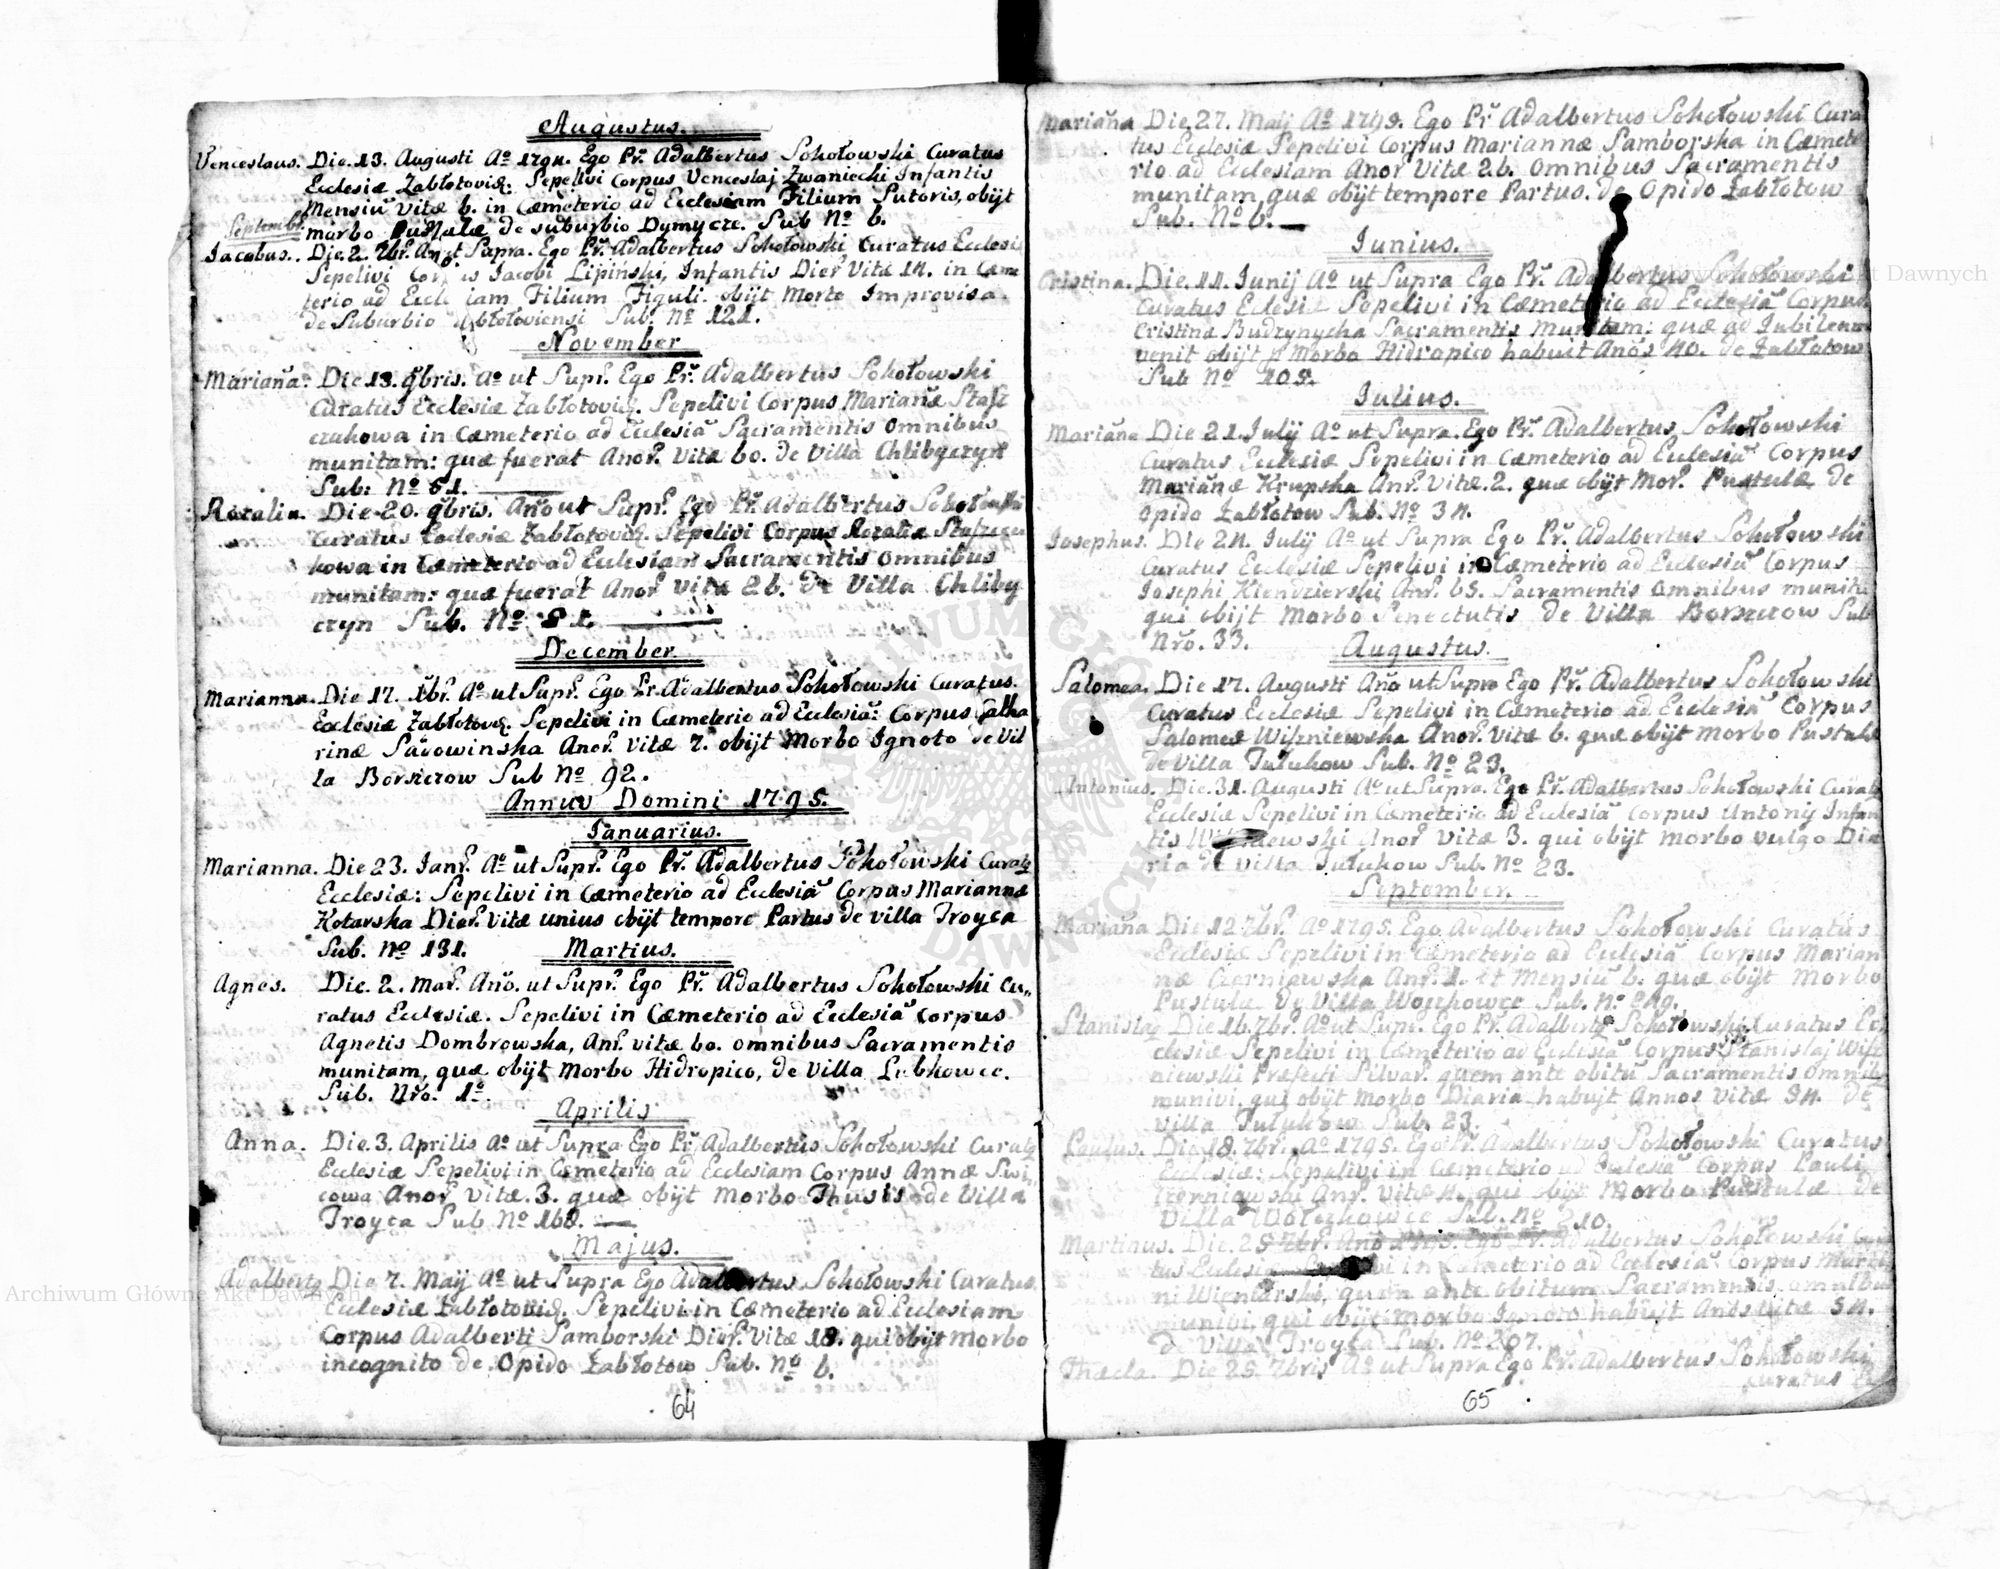 Augustus.
Venceslaus. Die. 13. Augusti Aº 1794. Ego Pr. Adalbertus Sokołowski Curatus
Ecclesiæ Zabłotovien: Sepelivi Corpus Venceslaj Zwaniecki Infantis
Mensiu vitæ 6. in Cæmeterio ad Ecclesiam Filium Sutoris, obijt
morbo Pustulæ de suburbio Dymycze. Sub Nº 6.
Septembr.
Jacobus. Die. 2. 7br. ut Supra. Ego Pr. Adalbertus Sokołowski Curatus Ecclesi
Sepelivi Jacobi Lipiński, Infantis Dier vitæ 14. in Cæme
terio ad Filium Figuli. obijt Morte Improvisa.
de Suburbio Sub. Nº 121.
November
Mariaña. Die 13. 9bris. Aº ut Supr. Ego Pr. Adalbertus Sokołowski
Curatus Ecclesiæ Zabłotovien. Sepelivi Corpus Mariañæ Stasz
czukowa in Cæmeterio ad Ecclesiã Sacramentis Omnibus
munitam: quæ fuerat Anor. vitæ 60. de Villa Chlibyczyn
Sub: Nº 81.
Rozalia. Die 20. 9bris. Año ut Supr. Ego Pr. Adalbertus Sokołowski
Curatus Ecclesiæ Zabłotovien. Sepelivi Corpus Rozaliæ Staszczu
kowa in Cæmeterio ad Ecclesiam Sacramentis Omnibus
munitam: quæ fuerat Anor vitæ 26. De Villa Chliby
czyn Sub. Nº 81.
December.
Marianna. Die 17. Xbr. Aº ut Supr. Ego Pr. Adalbertus Sokołowski Curatus
Ecclesiæ Zabłotovien. Sepelivi in Cæmeterio ad Ecclesiã Corpus Catha
rinæ Sadowinska Anor. vitæ 7. obijt Morbo Ignoto de Vil
la Borszczow Sub Nº 92.
Annus Domini 1795.
Januarius.
Marianna. Die 23. Janr. Aº ut Supr. Ego Pr. Adalbertus Sokołowski Curatq
Ecclesiæ: Sepelivi in Cæmeterio ad Ecclesiã Corpus Mariannæ
Kotarska Dier. vitæ unius obijt tempore Partus de villa Troyca
Sub. Nº 131.
Martius.
Agnes. Die. 2. Mar. Año. ut Supr. Ego Pr. Adalbertus Sokołowski Cu„
ratus Ecclesiæ. Sepelivi in Cæmeterio ad Ecclesiã Corpus
Agnetis Dombrowska, Anr. vitæ 60. omnibus Sacramentis
munitam, quæ obijt Morbo Hidropico, de Villa Lubkowce.
Sub. Nro. 1º.
Aprilis
Anna. Die. 3. Aprilis Aº ut Supra Ego Pr. Adalbertus Sokołowski Curatq
Ecclesiæ Sepelivi in Cæmeterio ad Ecclesiam Corpus Annæ
cowa Anor. vitæ. 3. quæ obijt Morbo Thusis de Villa
Troyca Sub Nº 168.
Majus.
Adalbertq Die 7. Maij Aº ut Supra Ego Adalbertus Sokołowski Curatus
Ecclesiæ Zabłotovien. Sepelivi in Cæmeterio ad Ecclesiam
Corpus Adalberti Samborski Dier. vitæ 18. qui obijt Morbo
incognito de Opido Zabłotow Sub. Nº 6.
64
Mariaña Die 27. Maij Aº 1795. Ego Pr Adalbertus Sokołowski Cura
tus Ecclesiæ Sepelivi Corpus Mariannæ Samborska in Cæmete
rio ad Ecclesiam Anor Vitæ 26. Omnibus Sacramentis
munitam quæ obijt tempore Partus. de Opido Zabłotow
Sub. Nº 6.
Junius.
Cristina. Die. 11. Junij Aº ut Supra Ego Pr. Adalbertus Sokołowski
Curatus Eclesiæ Sepelivi in Cæmeterio ad Ecclesiã Corpus
Cristinæ Budzynycha Sacramentis Munitam: quæ ad Jubileum
venit obijt p Morbo Hidropico habuit Anõs 40. de Zabłotow
Sub Nº 105.
Julius.
Mariaña Die 21. July Aº ut Supra. Ego Pr. Adalbertus Sokołowski
Curatus Ecclesiæ Sepelivi in Cæmeterio ad Ecclesiã Corpus
Mariañæ Krupska Anr. Vitæ. 2. quæ obijt Mor. Pustulæ de
Opido Zabłotow Sub. Nº 34.
Josephus. Die 24. July Aº ut Supra Ego Pr. Adalbertus Sokołowski
Curatus Ecclesiæ Sepelivi in Cæmeterio ad Ecclesiã Corpus
Josephi Kiendzierski Anr. 65. Sacramentis Omnibus muniti
qui obijt Morbo Senectutis de Villa Borszczow Sub
Nro. 33.
Augustus.
Salomea. Die 17. Augusti Año ut Supra Ego Pr. Adalbertus Sokołowski
Curatus Ecclesiæ Sepelivi in Cæmeterio ad Ecclesiã Corpus
Salomeæ Wiszniewska Anor. vitæ 6. quæ obijt Morbo Pustulæ
de Villa Tułukow Sub. Nº 23.
Antonius. Die. 31. Augusti Aº ut Supra. Ego Pr. Adalbertus Sokołowski Curatq
Ecclesiæ Sepelivi in Cæmeterio ad Ecclesiã Corpus Antonij Infan
tis Anor vitæ 3. qui obijt Morbo vulgo Dia
ria de Villa Tułukow Sub. Nº 23.
September.
Mariaña Die 12 7br. Aº 1795. Ego Adalbertus Sokołowski Curatus
Ecclesiæ Sepelivi in Cæmeterio ad Ecclesiã Corpus Marian
næ Czerniawska Anr. 1. et Mensiũ 6. quæ obijt Morbo
Pustulæ de Villa Sub. Nº
Stanislaq Die 16. 7br. Aº ut Supr. Ego Pr. Adalbertq Sokołowski Curatus Ec
clesiæ Sepelivi in Cæmeterio ad Ecclesiã Corpus Stanislaj Wisz
niewski Præfecti Silvar. quem ante obitũ Sacramentis omnib
munivi, qui obijt Morbo Diaria habuit Annos vitæ 34. de
villa Tułukow Sub. 23.
Paulus. Die 18. 7br. Aº 1795. Ego Pr. Adalbertus Sokołowski Curatus
Ecclesiæ: Sepelivi in Cæmeterio ad Ecclesiã Corpus Pauli
Czerniawski Anr. vitæ 4. qui obijt Morbo Pustulæ de
Villa Wołczkowce Sub. Nº 210.
Martinus. Die. 25 7br. Año 1795. Ego Pr. Adalbertus Sokołowski Cura
tus Eclesiæ in Cæmeterio ad Ecclesiã Corpus Marti
ni Wieniarski, quem ante obitum Sacramentis omnibus
munivi, qui obijt Morbo Ignoto habuit Anõs vitæ 54.
de Villa Troyca Sub. Nº 207.
Thæcla. Die 25 7bris Aº ut Supra Ego Pr. Adalbertus Sokołowski
Curatus Ec
65
Archiwum Główne Akt Dawnych